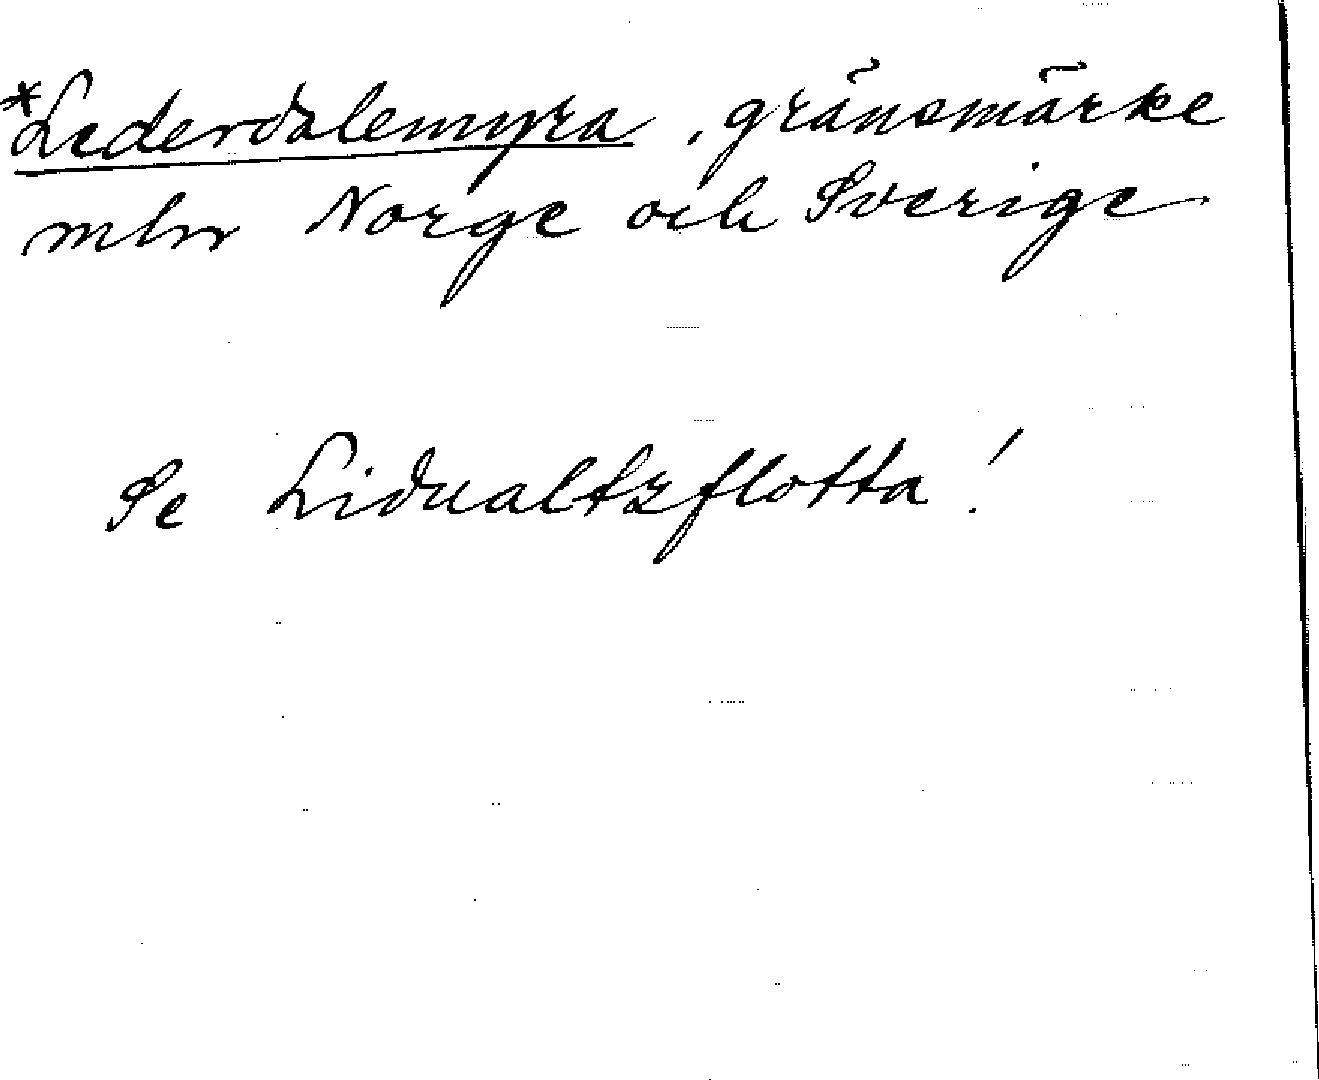 *Lederdalemyra, gränsmärke
mlr Norge och Sverige.
Se Lidualtzflotta!